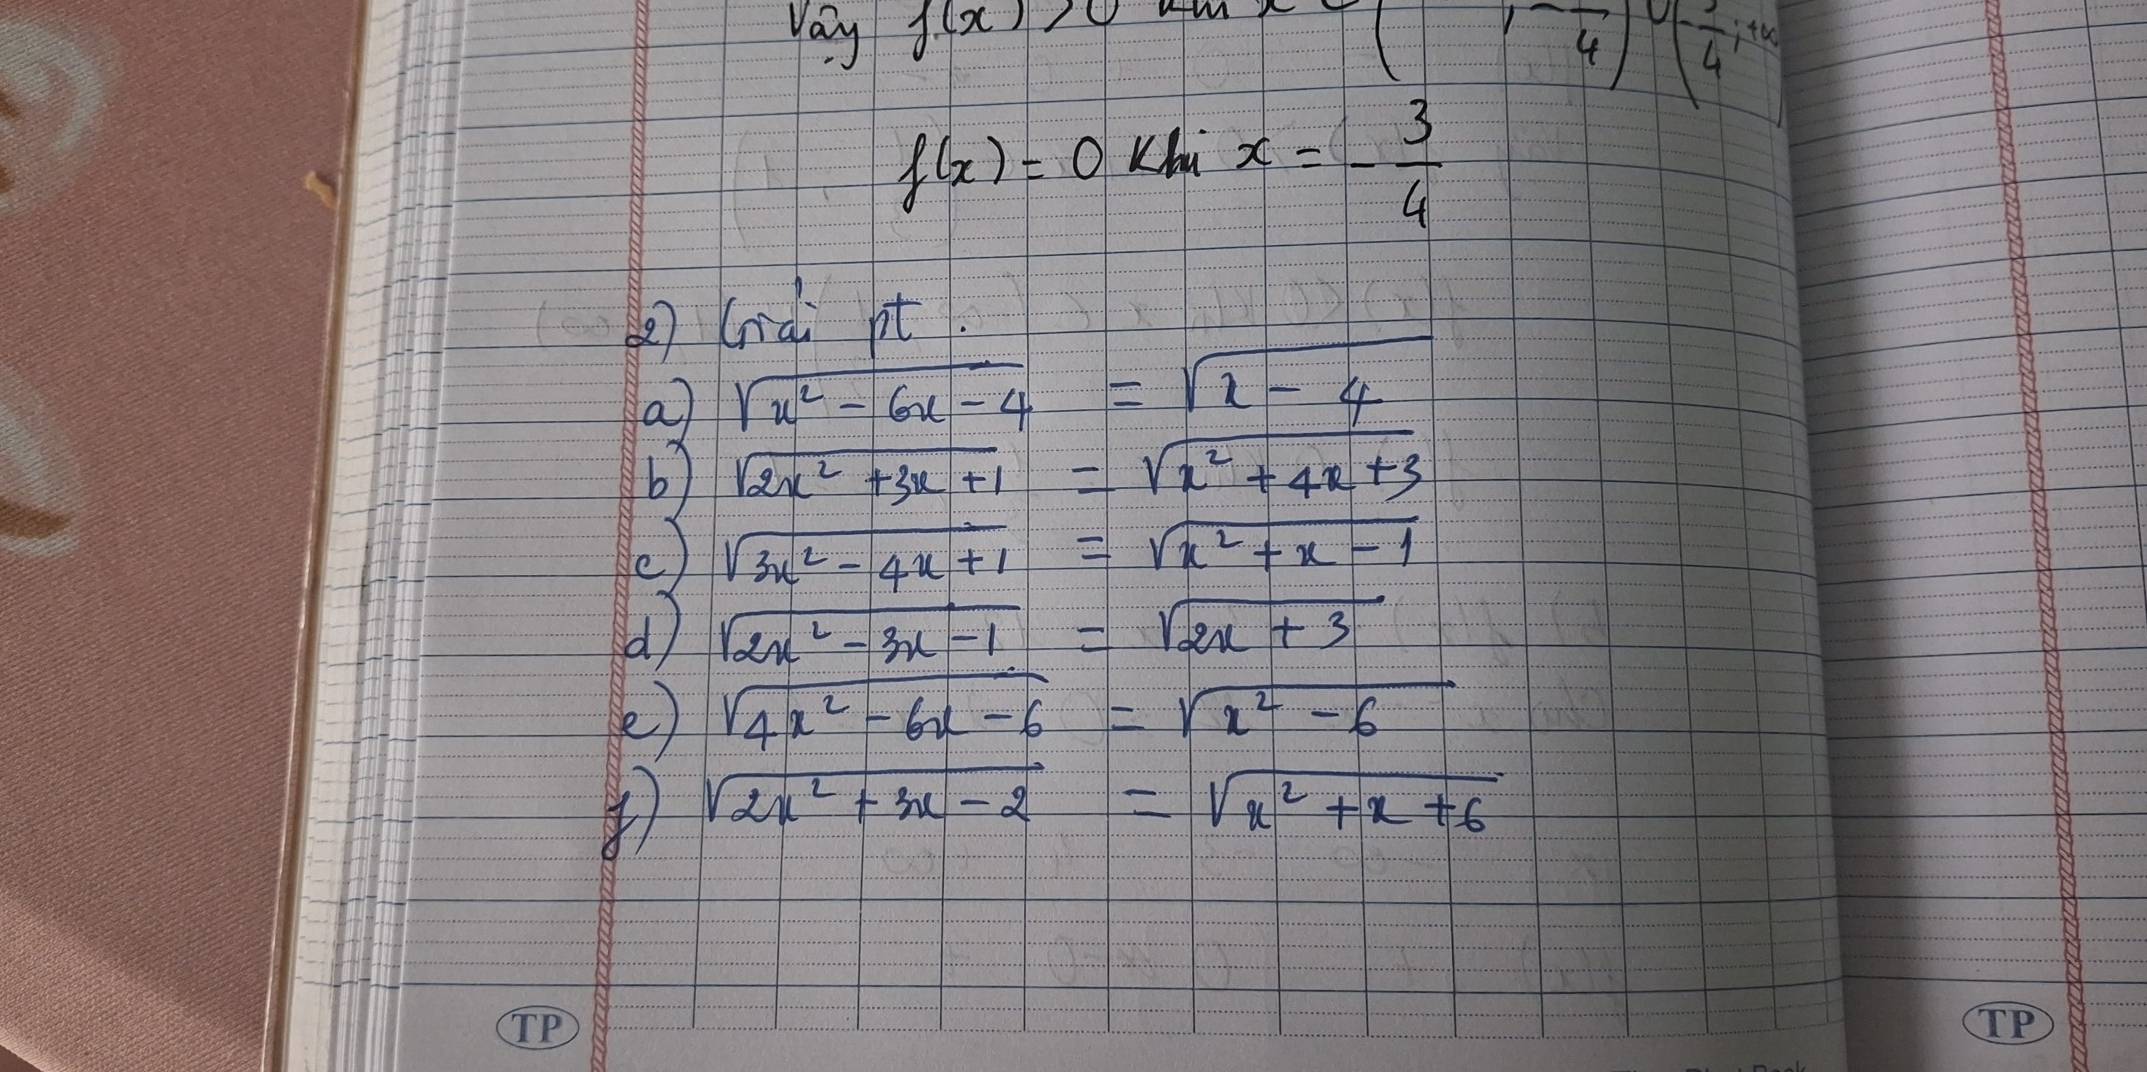 Vậy f(x) > 0 khi x ∈ ( ; -/4) ∪ (-3/4; +∞)
f(x) = 0 khi x = - 3/4
2) Giải pt .
a) √(x² - 6x - 4) = √(x - 4)
b) √(2x² + 3x + 1) = √(x² + 4x + 3)
c) √(3x² - 4x + 1) = √(x² + x - 1)
d) √(2x² - 3x - 1) = √(2x + 3)
e) √(4x² - 6x - 6) = √(x² - 6)
f) √(2x² + 3x - 2) = √(x² + x + 6)
TP
TP